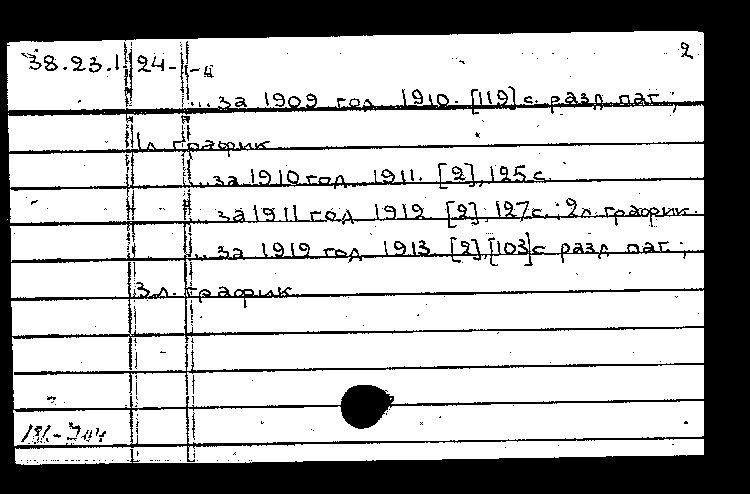 2
38.23.1.24-
... за 1909 год 1910. [119] с. разд паг. ;
1л график
... за 1910 год 1911. [2], 125 с.
... за 1911 год 1912 [2], 127с. ; 2л. график.
... за 1919 год 1913. [2], [103] с разд паг. ;
3л. график